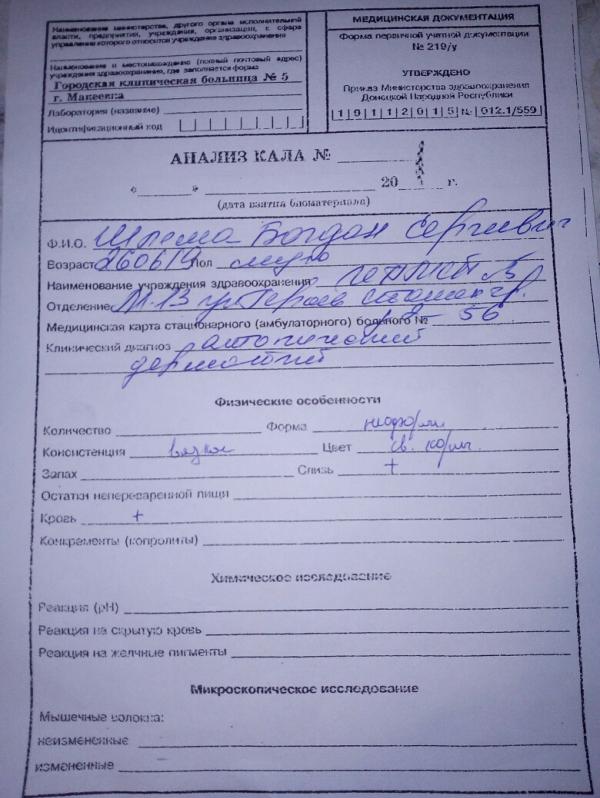 Наименование министерства, другого органа исполнительной
власти, предприятия, учреждения, организации, к сфере
управления которого относится учреждение здравоохранения
Наименование и местонахождение (полный почтовый адрес)
учреждения здравоохранения, где заполняется форма
Городская клиническая больница № 5
г. Макеевка
Лаборатория (название)
Идентификационный код
МЕДИЦИНСКАЯ ДОКУМЕНТАЦИЯ
Форма первичной учетной документации
№ 219/у
УТВЕРЖДЕНО
Приказ Министерства здравоохранения
Донецкой Народной Республики
19112015 № 012.1/559
АНАЛИЗ КАЛА №
« » 20 г.
(дата взятия биоматериала)
Ф.И.О. Шлема Богдан Сергеевич
Возраст 260619 Пол
Наименование учреждения здравоохранения
Отделение М-13 Героев
Медицинская карта стационарного (амбулаторного) больного № 56
Клинический диагноз атопический
дерматит
Физические особенности
Количество Форма неоформ.
Консистенция вязкая Цвет св. корич.
Запах Слизь +
Остатки непереваренной пищи
Кровь +
Конкременты (копролиты)
Химическое исследование
Реакция (pH)
Реакция на скрытую кровь
Реакция на желчные пигменты
Микроскопическое исследование
Мышечные волокна:
неизмененные
измененные